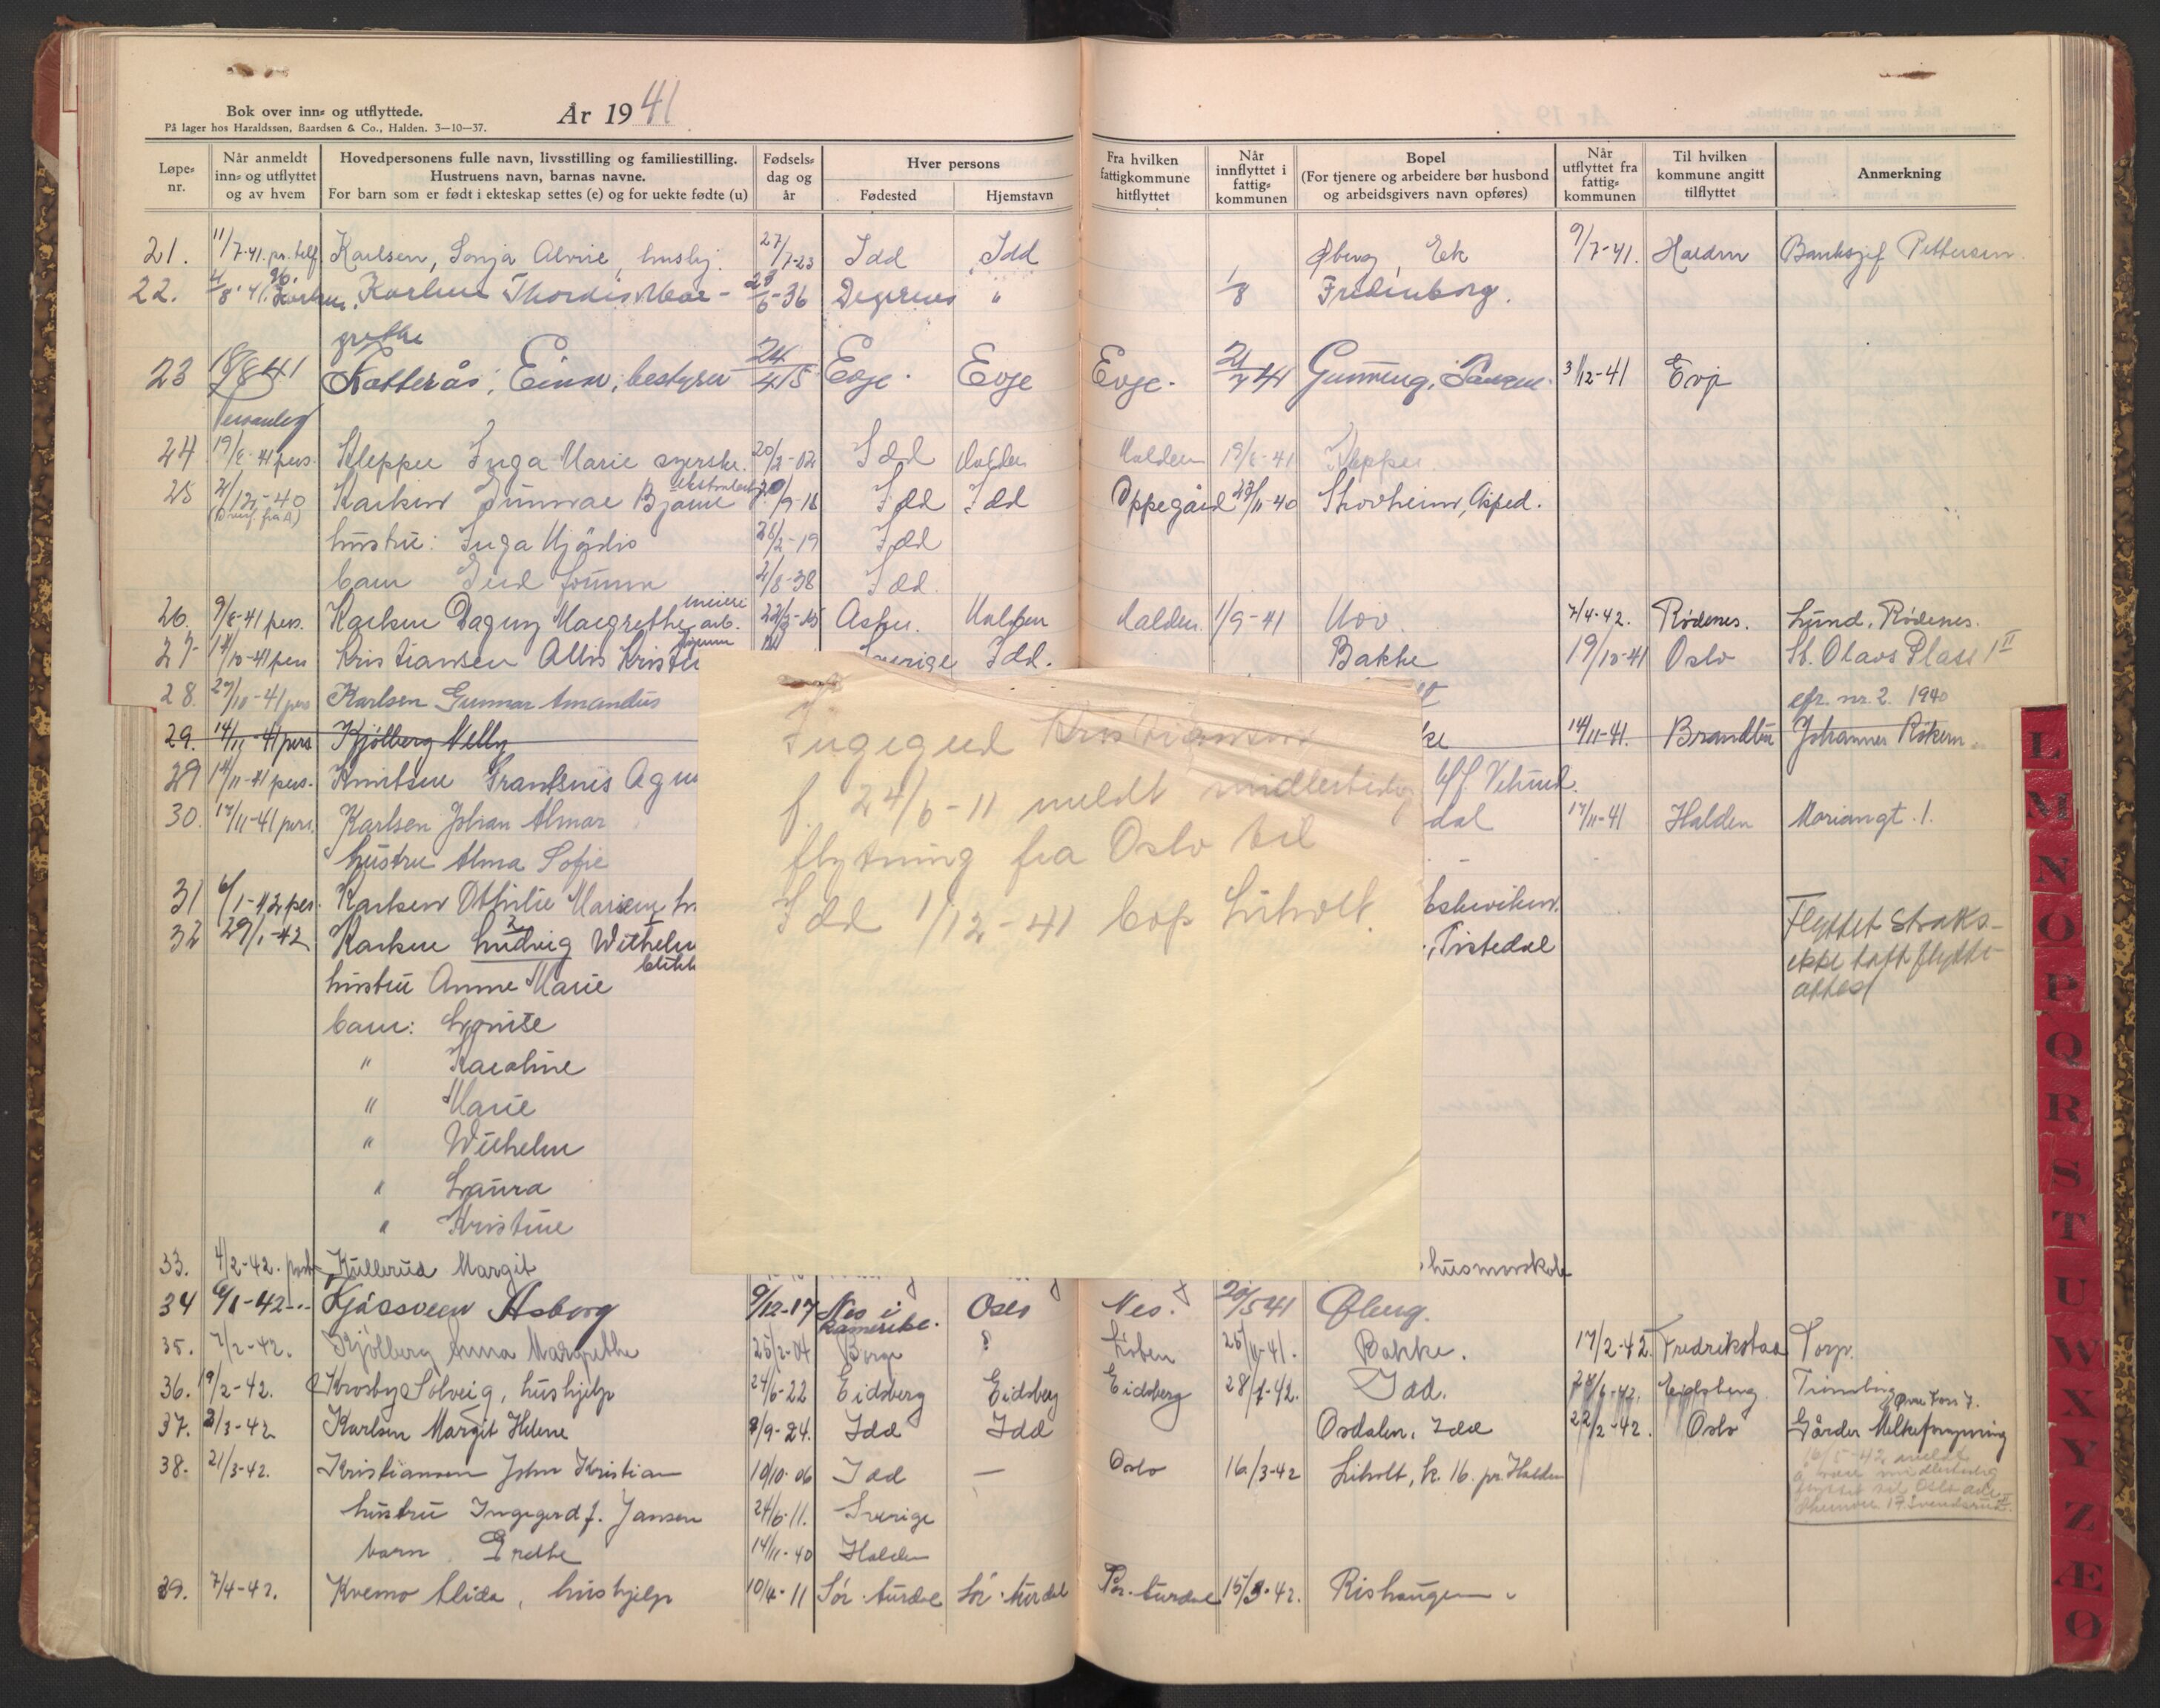 Bok over inn- og utflyttede.
På lager hos Haraldssøn, Baardsen & Co., Halden. 3-10-37.
År 1941
Løpe-nr.
Når anmeldt inn- og utflyttet og av hvem
Hovedpersonens fulle navn, livsstilling og familiestilling.
Hustruens navn, barnas navne.
For barn som er født i ekteskap settes (e) og for uekte fødte (u)
Fødsels-dag og år
Hver persons
Fødested
Hjemstavn
Fra hvilken fattigkommune hitflyttet
Når innflyttet i fattig-kommunen
Bopel
(For tjenere og arbeidere bør husbond og arbeidsgivers navn opføres)
Når utflyttet fra fattig-kommunen
Til hvilken kommune angitt tilflyttet
Anmerkning
21. 11/7-41. pr. telf Karlsen, Sonja Alvine, hushj. 27/7-23 Idd Idd Øberg, Ek 9/7-41. Halden Banksjef Pettersen
22. Karlsen Thordis Mar- 6-36 Degernes " 1/8 Fredenborg.
grethe
23 18/8 41 Einar, bestyrer Evje Evje Evje. 3/12-41 Evje
Personlig
24 19/8-41 pers. Kleppe Inga Marie syerske. 20/2-02 Idd Halden Halden 19/8-41 Kleppe
25 2/12-40 Karlsen Gunnar Bjarne 20/9-18 Idd Idd Oppegård 23/11-40 Skovheim, Asped.
(Overf. fra A)
hustru: Inga Hjördis 28/2-19 Idd
barn Gerd Gunvor 2/8-38 Idd.
26. 9/8-41 pers. Karlsen Dagny Margrethe meieri arb. Halden Halden. 1/9-41 Hov. 7/4-42. Rødenes. Lund, Rødenes.
27 14/10-41 pers Kristiansen Sverige Idd. Bakke 19/10-41 Oslo St. Olavs Plass 1 II
28. 27/10-41 pers Karlsen Gunnar Amandus cfr. nr. 2. 1940
29. 14/11-41 pers Kjølberg Nelly ke 14/11-41. Brandbu Johannes Røken.
29 14/11-41 pers. Knutsen
30. 17/11-41 pers. Karlsen Johan Almar dal 17/11-41 Halden Mariagt. 1.
hustru Alma Sofie
31 6/1-42 pers. Karlsen Othilie
32 29/1-42 Karlsen Ludvig Wilhelm , Tistedal Flyttet straks-
ikke tatt flytte-
attest
hustru Anne Marie
barn: Lovise
" Karoline
" Marie
" Wilhelm
" Laura
" Kristine
Ingegerd Kristiansen
f. 24/6-11 meldt midlertidig
flytning fra Oslo til
Idd 1/12-41 bop Liholt.
33. 4/2-42. post Kullerud Margit husmorskole
34 6/1-42 Asborg 9/12-17 Nes i Romerike. Oslo Nes. 20/5 41 Øberg.
35. 7/2-42. Kjølberg Anna Margrethe 25/2-04 Borge ? 25/11-41. Bakke. 17/2-42. Fredrikstad Torp.
36. 19/2-42. Krosby Solveig, hushjelp 24/6-22 Eidsberg Eidsberg Eidsberg 28/1-42. Idd. Eidsberg
37. 2/3-42 Karlsen Margit Helene 8/9-24. Idd Idd Osdalen, Idd 22/2-42. Oslo Gårder Melkeforsyning
38. 21/3-42. Kristiansen John Kristian 10/10-06 Idd — Oslo 16/3-42 Liholt, k. 16. pr Halden 16/5-42 meldt
å være midlertidig
flyttet til Oslo
hustru Ingegerd f. Jansen 24/6-11. Sverige
barn Grethe 14/11-40 Halden
39. 7/4-42. Kvemo Alida, hushjelp 10/4-11 Sør-Aurdal Sør-Aurdal Sør-Aurdal 15/3-42. Rishaugen
L
M
N
O
P
Q
R
S
T
U
W
X
Y
Z
Æ
Ø